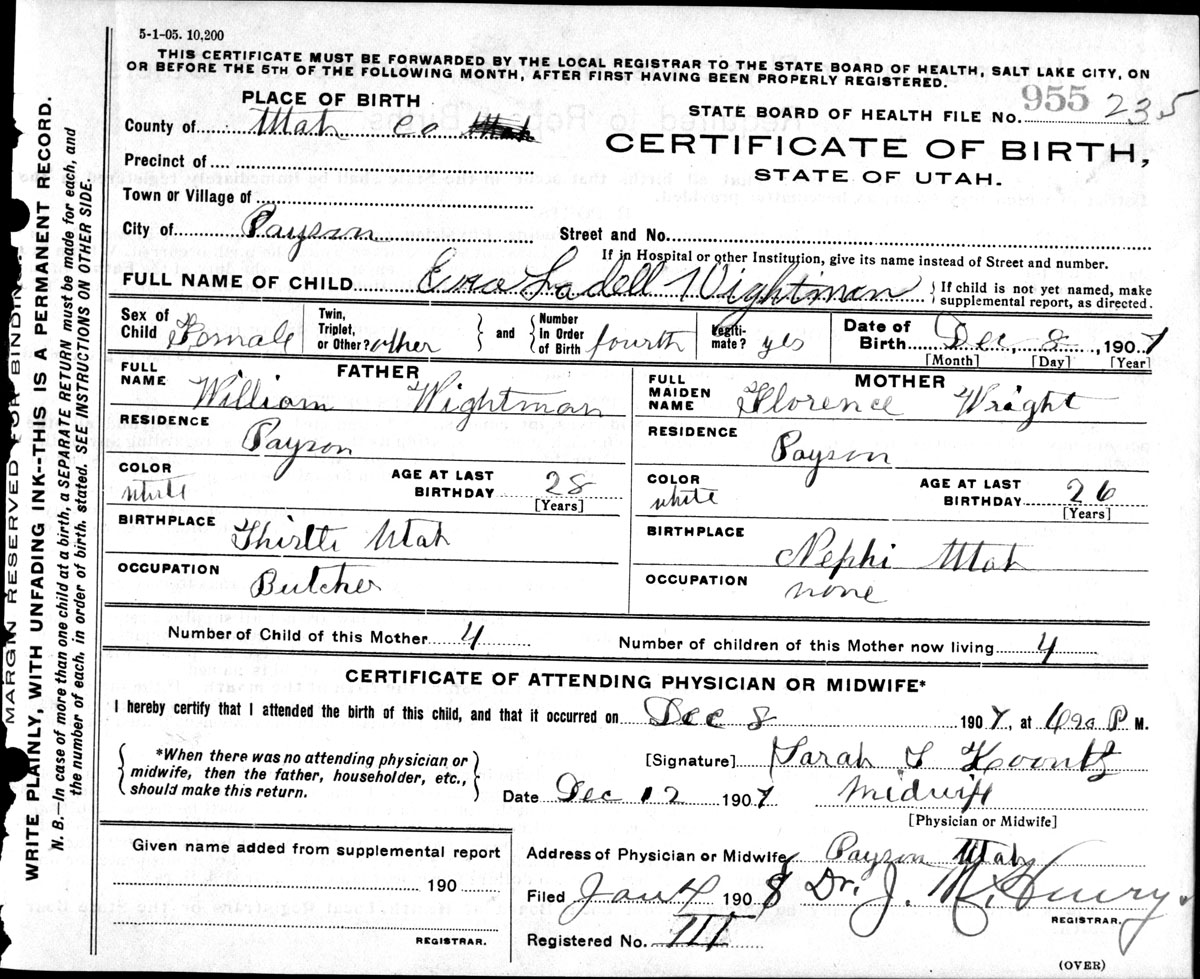 5-1-05. 10,200
THIS CERTIFICATE MUST BE FORWARDED BY THE LOCAL REGISTRAR TO THE STATE BOARD OF HEALTH, SALT LAKE CITY, ON
OR BEFORE THE 5TH OF THE FOLLOWING MONTH, AFTER FIRST HAVING BEEN PROPERLY REGISTERED.
MARGIN RESERVED FOR BINDING.
WRITE PLAINLY, WITH UNFADING INK--THIS IS A PERMANENT RECORD.
N. B.—In case of more than one child at a birth, a SEPARATE RETURN must be made for each, and
the number of each, in order of birth, stated. SEE INSTRUCTIONS ON OTHER SIDE.
PLACE OF BIRTH
County of Utah Co
Precinct of
Town or Village of
City of Payson
STATE BOARD OF HEALTH FILE NO. 955 235
CERTIFICATE OF BIRTH,
STATE OF UTAH.
Street and No.
If in Hospital or other Institution, give its name instead of Street and number.
FULL NAME OF CHILD Ladell Wightman { If child is not yet named, make
supplemental report, as directed.
Sex of Child Female Twin, Triplet, or Other? other and Number in Order of Birth fourth Legitimate? yes Date of Birth Dec, 8, 1907
[Month] [Day] [Year]
FATHER
FULL NAME William Wightman
RESIDENCE Payson
COLOR white AGE AT LAST BIRTHDAY 28
[Years]
BIRTHPLACE Utah
OCCUPATION Butcher
MOTHER
FULL MAIDEN NAME Florence Wright
RESIDENCE Payson
COLOR white AGE AT LAST BIRTHDAY 26
[Years]
BIRTHPLACE Nephi Utah
OCCUPATION none
Number of Child of this Mother 4 Number of children of this Mother now living 4
CERTIFICATE OF ATTENDING PHYSICIAN OR MIDWIFE*
I hereby certify that I attended the birth of this child, and that it occurred on Dec 8 1907, at P M.
*When there was no attending physician or
midwife, then the father, householder, etc.,
should make this return.
[Signature] Sarah Koontz
Date Dec 12 1907 Midwife
[Physician or Midwife]
Given name added from supplemental report
190
REGISTRAR.
Address of Physician or Midwife Payson Utah
Filed Jan 4 1908 Dr. J. M. Henry.
REGISTRAR.
Registered No. 111
(OVER)